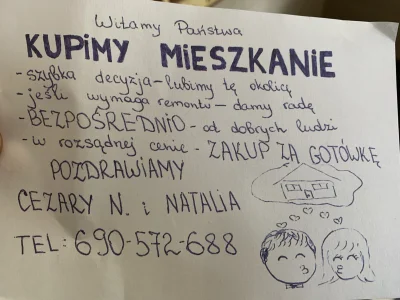 Witamy Państwa
KUPIMY MIESZKANIE
- szybka decyzja - lubimy tę okolicę
- jeśli wymaga remontu - damy radę
- BEZPOŚREDNIO - od dobrych ludzi
- w rozsądnej cenie - ZAKUP ZA GOTÓWKĘ
POZDRAWIAMY
CEZARY N. i NATALIA
TEL: 690-572-688